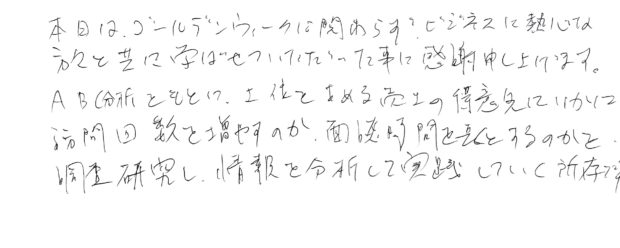 本日は、ゴールデンウィークに関わらず、ビジネスに熱心な
方々と共に学ばせていただいた事に感謝申し上げます。
ABC分析をもとに、上位を占める売上の得意先にいかに
訪問回数を増やすのか、面談時間を長くとするのかを、
調査研究し、情報を分析して実践していく所存です